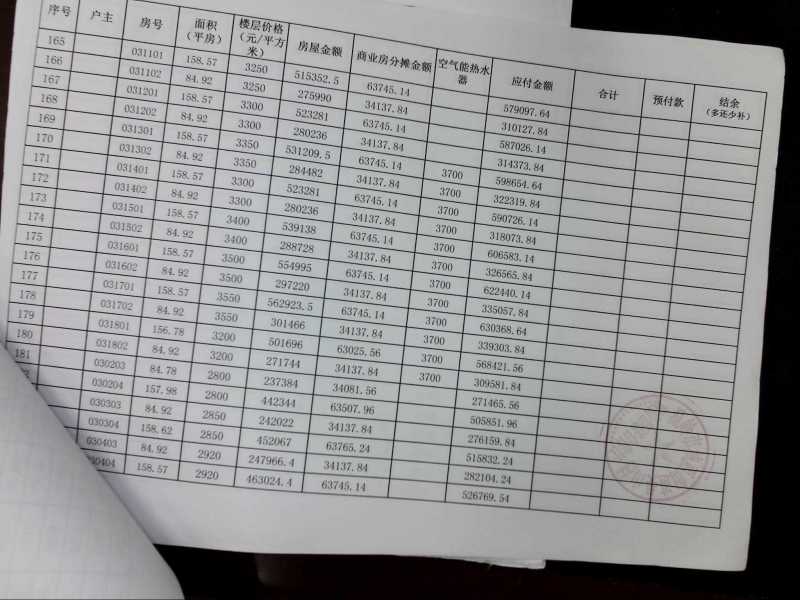 序号 户主 房号 面积（平房） 楼层价格（元/平方米） 房屋金额 商业房分摊金额 空气能热水器 应付金额 合计 预付款 结余（多还少补）
165 031101 158.57 3250 515352.5 63745.14 579097.64
166 031102 84.92 3250 275990 34137.84 310127.84
167 031201 158.57 3300 523281 63745.14 587026.14
168 031202 84.92 3300 280236 34137.84 314373.84
169 031301 158.57 3350 531209.5 63745.14 3700 598654.64
170 031302 84.92 3350 284482 34137.84 3700 322319.84
171 031401 158.57 3300 523281 63745.14 3700 590726.14
172 031402 84.92 3300 280236 34137.84 3700 318073.84
173 031501 158.57 3400 539138 63745.14 3700 606583.14
174 031502 84.92 3400 288728 34137.84 3700 326565.84
175 031601 158.57 3500 554995 63745.14 3700 622440.14
176 031602 84.92 3500 297220 34137.84 3700 335057.84
177 031701 158.57 3550 562923.5 63745.14 3700 630368.64
178 031702 84.92 3550 301466 34137.84 3700 339303.84
179 031801 156.78 3200 501696 63025.56 3700 568421.56
180 031802 84.92 3200 271744 34137.84 3700 309581.84
181 030203 84.78 2800 237384 34081.56 271465.56
030204 157.98 2800 442344 63507.96 505851.96
030303 84.92 2850 242022 34137.84 276159.84
030304 158.62 2850 452067 63765.24 515832.24
030403 84.92 2920 247966.4 34137.84 282104.24
030404 158.57 2920 463024.4 63745.14 526769.54